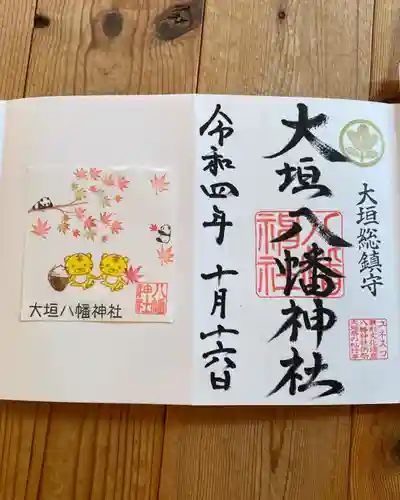 大垣総鎮守
大垣八幡神社
八幡神社
令和四年十月十六日
ユネスコ
大垣八幡神社
八幡神社